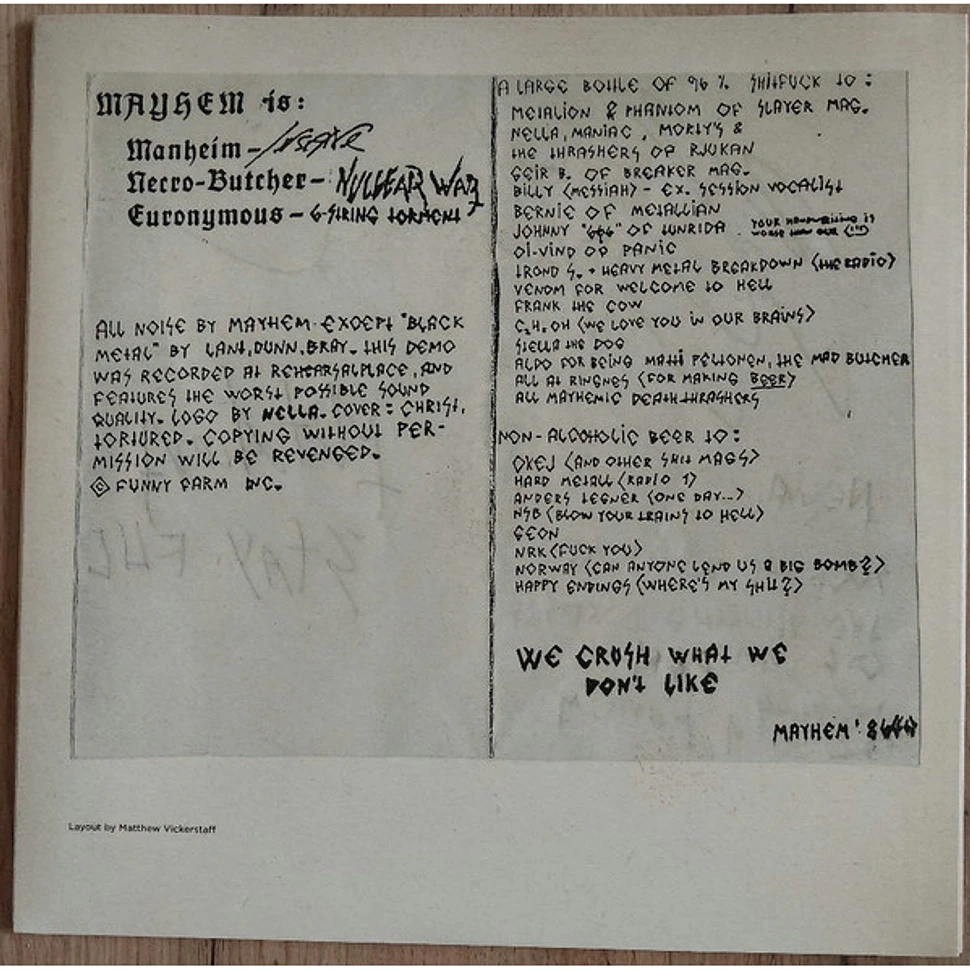 MAYHEM is:
Manheim -
Necro-Butcher - NUCLEAR WAR
Euronymous - 6-STRING TORMENT
ALL NOISE BY MAYHEM EXCEPT "BLACK
METAL" BY LANT, DUNN, BRAY. THIS DEMO
WAS RECORDED AT REHEARSALPLACE, AND
FEATURES THE WORST POSSIBLE SOUND
QUALITY. LOGO BY NELLA. COVER: CHRIST,
TORTURED. COPYING WITHOUT PER-
MISSION WILL BE REVENGED.
© FUNNY FARM INC.
A LARGE BOTTLE OF 96 % SHITFUCK TO:
METALION & PHANTOM OF SLAYER MAG.
NELLA, MANIAC, MORTY'S &
THE THRASHERS OF RJUKAN
GEIR B. OF BREAKER MAG.
BILLY (MESSIAH) - EX. SESSION VOCALIST
BERNIE OF METALLIAN
JOHNNY "666" OF TUNRIDA YOUR HANDWRITING IS
WORSE THAN OUR
OI-VIND OF PANIC
TROND S. + HEAVY METAL BREAKDOWN (THE RADIO)
VENOM FOR WELCOME TO HELL
FRANK THE COW
C.H. OH (WE LOVE YOU IN OUR BRAINS)
STELLA THE DOG
ALDO FOR BEING MATTI PELTONEN, THE MAD BUTCHER
ALL AT RINGNES (FOR MAKING BEER)
ALL MAYHEMIC DEATH-THRASHERS
NON-ALCOHOLIC BEER TO:
OKEJ (AND OTHER SHIT MAGS)
HARD METALL (RADIO 1)
ANDERS TEGNER (ONE DAY...)
NSB (BLOW YOUR TRAINS TO HELL)
GEON
NRK (FUCK YOU)
NORWAY (CAN ANYONE LEND US A BIG BOMB?)
HAPPY ENDINGS (WHERE'S MY SHIT?)
WE CRUSH WHAT WE
DON'T LIKE
MAYHEM '8666
Layout by Matthew Vickerstaff